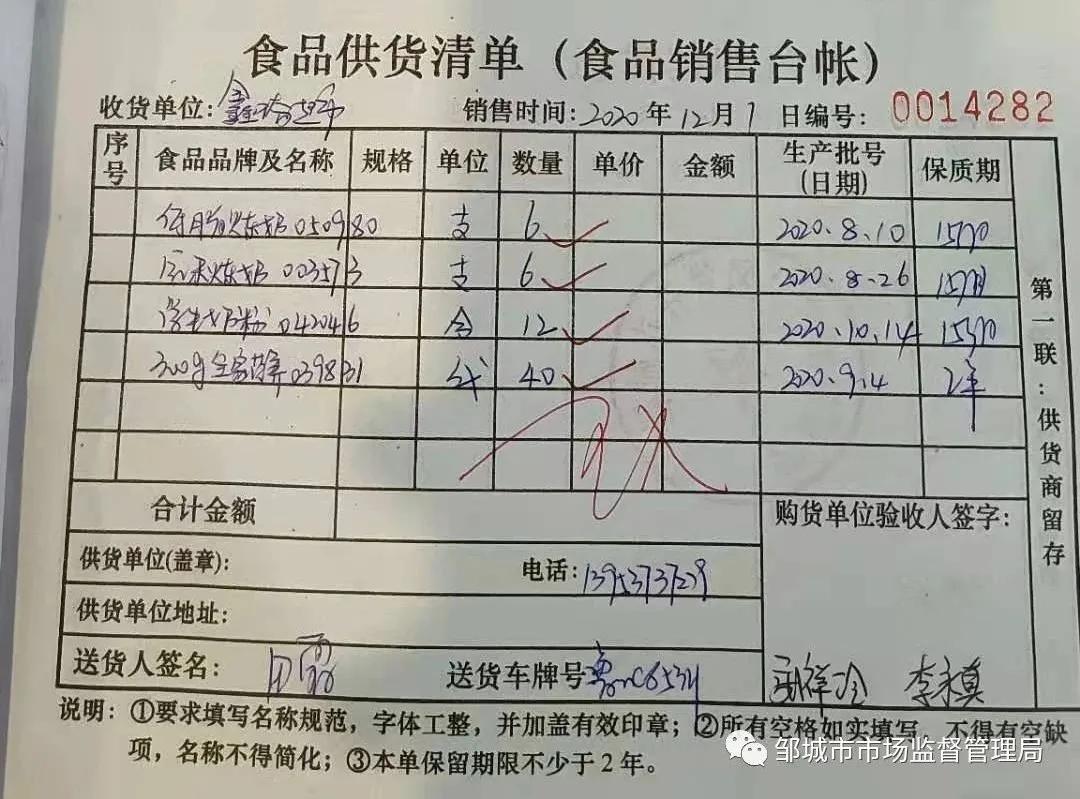 食品供货清单（食品销售台帐）
收货单位： 销售时间：2020年12月1日编号：0014282
序号 食品品牌及名称 规格 单位 数量 单价 金额 生产批号(日期) 保质期
炼奶 050980 支 6 2020.8.10
炼奶 003573 支 6 2020.8.26
学生奶粉 042046 12 2020.10.14
300g全家 039831 袋 40 2020.9.4 2年
合计金额
购货单位验收人签字：
供货单位(盖章)： 电话：13953737239
供货单位地址：
送货人签名：田霞 送货车牌号
李永真
第一联：供货商留存
说明：①要求填写名称规范，字体工整，并加盖有效印章；②所有空格如实填写，不得有空缺
项，名称不得简化；③本单保留期限不少于2年。
邹城市市场监督管理局